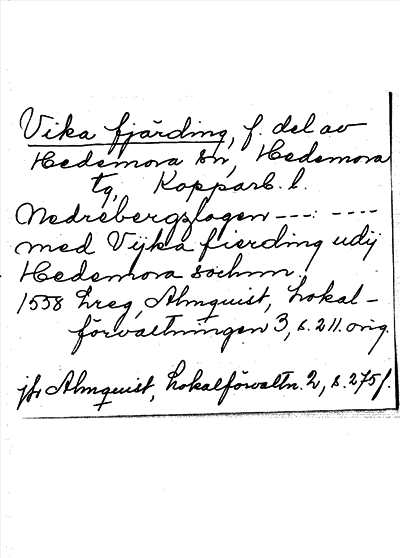 Vika fjärding, f. del av
Hedemora sn, Hedemora
tg, Kopparb. l.
Nedrebergslagen ---: ----
med Vijka fierding udij
Hedemora sochnn.
1558 Lreg, Almquist, Lokal-
förvaltningen 3, s. 211. orig.
jfr Almquist, Lokalförvaltn. 2, s. 275 f.